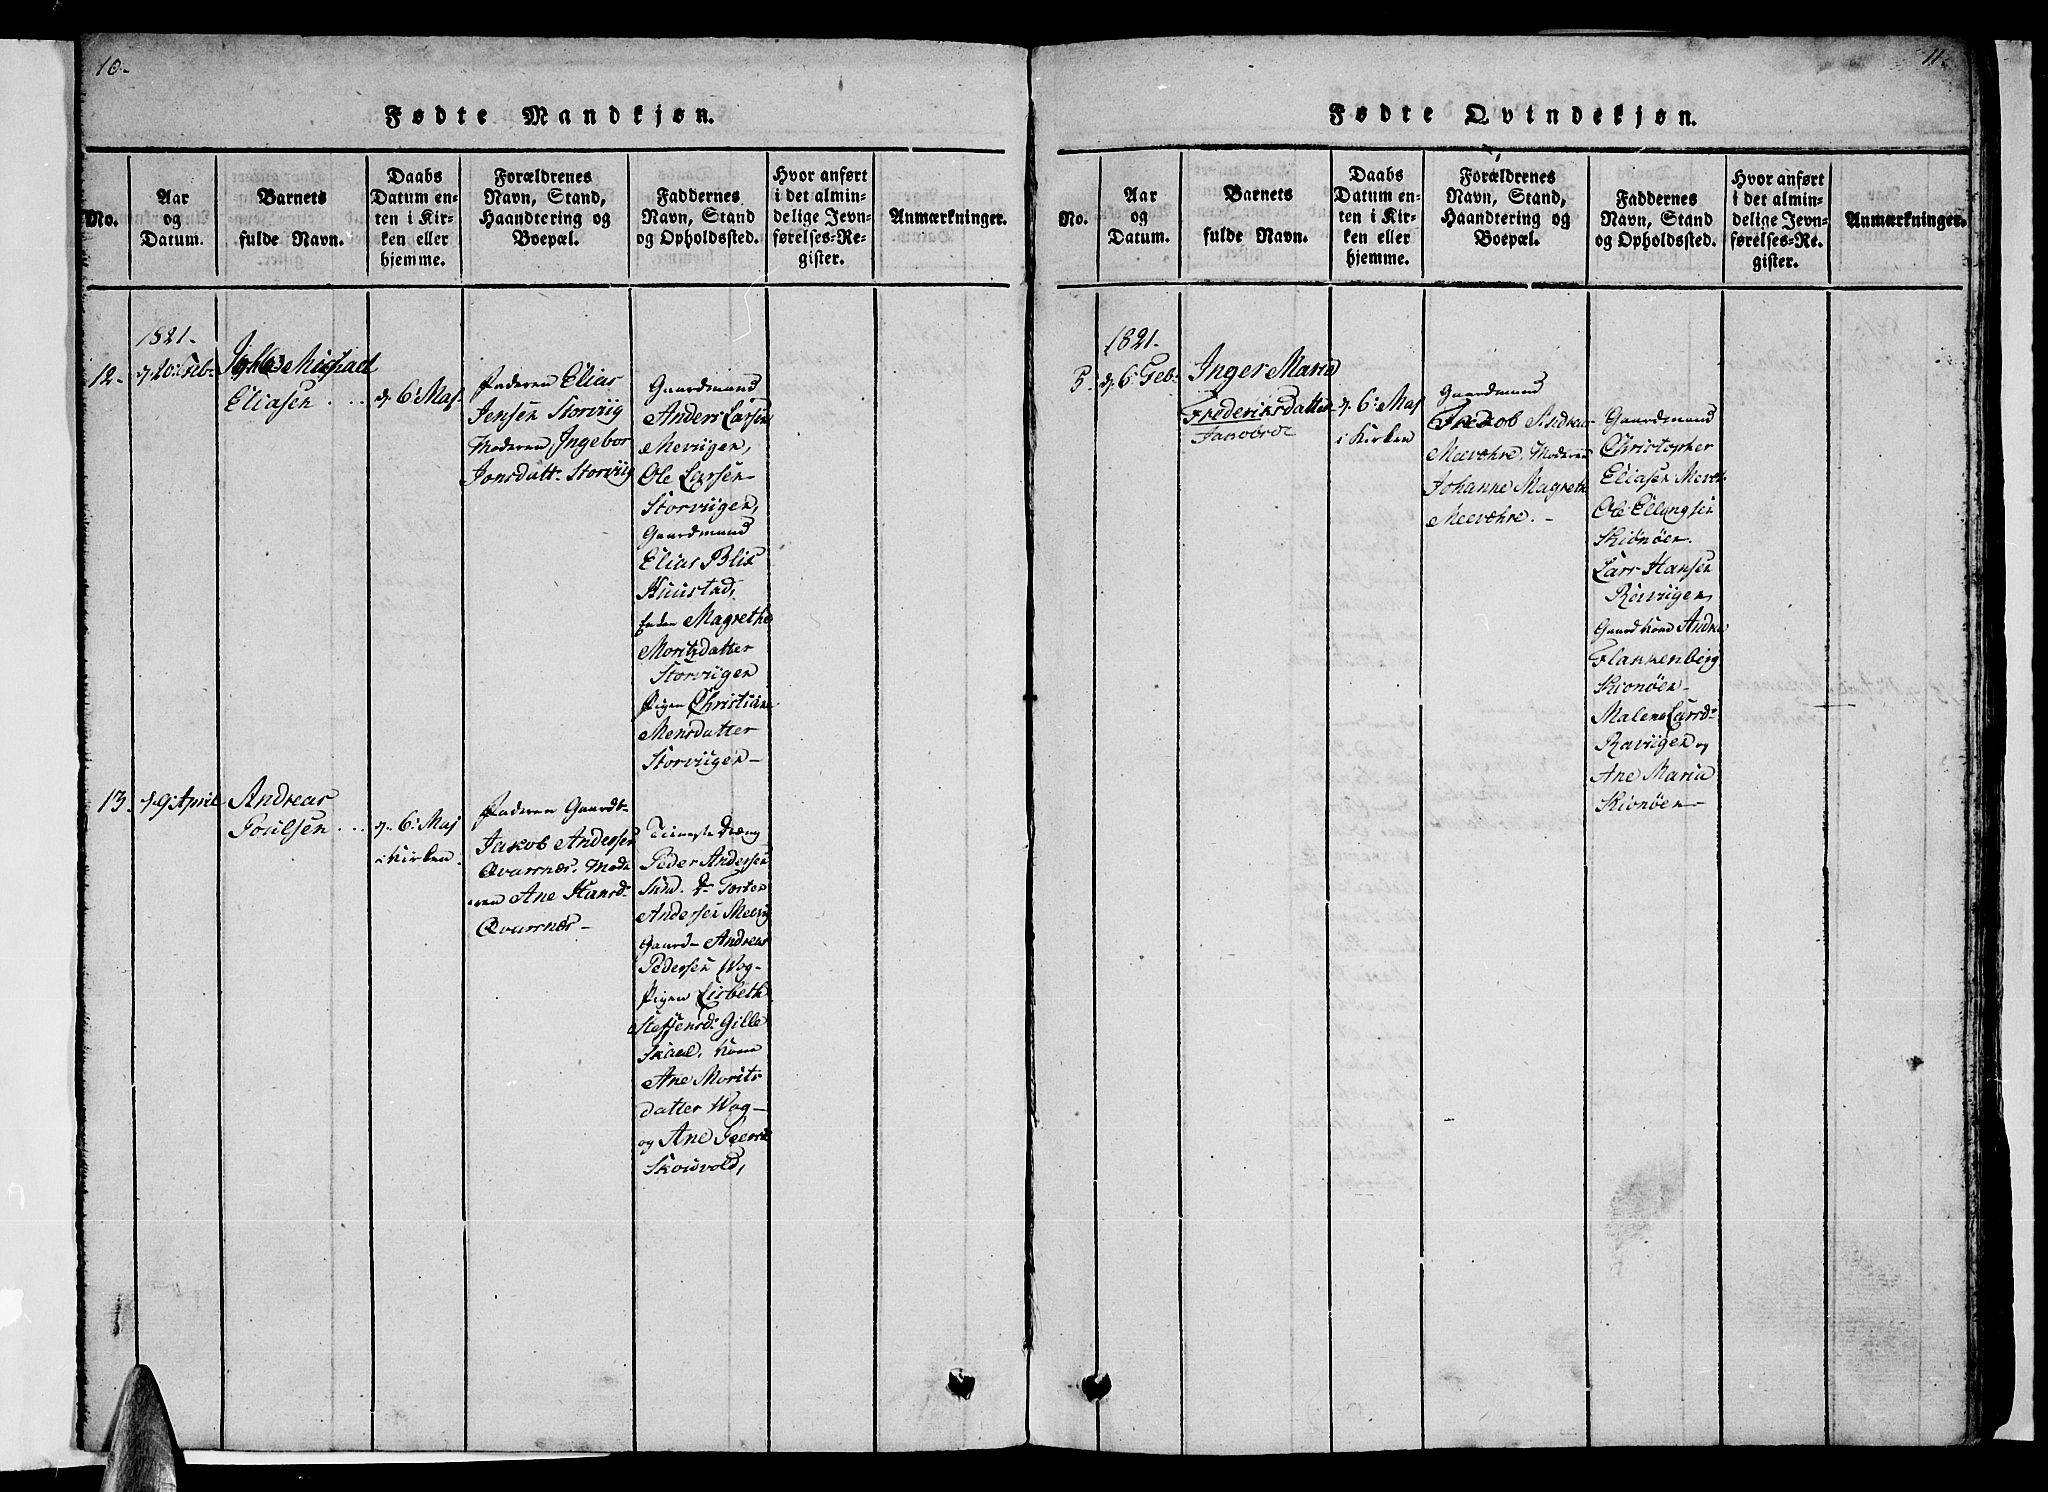 10.
Fødte Mandkjøn.
No.
Aar
og
Datum.
Barnets
fulde Navn.
Daabs
Datum en-
ten i Kir-
ken eller
hjemme.
Forældrenes
Navn, Stand,
Haandtering og
Boepæl.
Faddernes
Navn, Stand
og Opholdssted.
Hvor anført
i det almin-
delige Jevn-
førelses-Re-
gister.
Anmærkninger.
1821.
12.
d. 20 Feb.
Michael
Eliasen
d. 6. Maj.
Faderen Elias
Jensen Storviig
Moderen Ingebor
Jonsdatt. Storviig
Gaardmand
Anders Larsen
Meviigen,
Ole Larsen
Storviigen,
Gaardmand
Elias Blix
Kuustad,
Enken Magrethe
Moritsdatter
Storviigen
Pigen Christiane
Mensdatter
Storviigen
13.
d. 9. April
Andreas
Poulsen
d. 6. Maj
i Kirken.
Faderen Gaardb.
Jakob Andersen
Qvarnæs, Mode
ren Ane Hansd.
Qvarnæs
Tieneste dreng
Peder Andersen
Sund. do Torten
Andersen
Gaard Andreas
Pedersen Wog
Pigen Lisbeth
Steffensd. Gille
Skaal, Kone
Ane Morits
datter Wog
og Ane
Skousvold,
11.
Fødte Qvindekjøn.
No.
Aar
og
Datum.
Barnets
fulde Navn.
Daabs
Datum en-
ten i Kir-
ken eller
hjemme.
Forældrenes
Navn, Stand,
Haandtering og
Boepæl.
Faddernes
Navn, Stand
og Opholdssted.
Hvor anført
i det almin-
delige Jevn-
førelses-Re-
gister.
Anmærkninger.
1821.
5.
d. 6. Feb.
Inger Maria
Frederiksdatter
d. 6. Maj
i Kirken
Gaardmand
Andreas
Meevohre, Moderen
Johanne Magrethe
Meevohre.
Gaardmand
Christopher
Eliasen
Ole Ellingsen
Skionøen.
Lars Hansen
Røsviigen
Gaardkone Andrea
Flakkenberg
Skionøen
Malene Larsd.
Raviigen og
Ane Maria
Skionøen